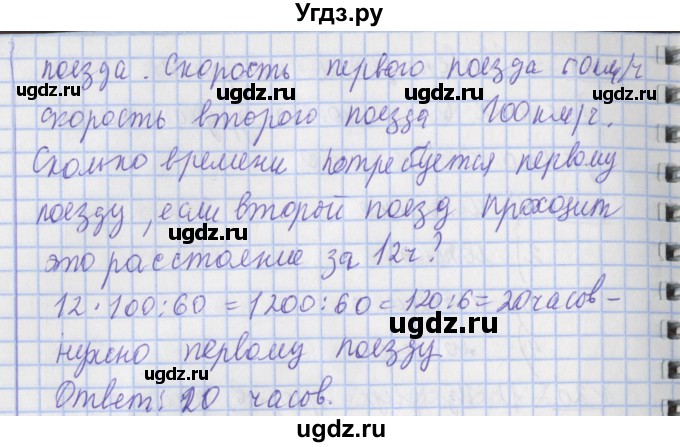 Угдз.ру
поезда. Скорость первого поезда 60км/ч
скорость второго поезда 100км/ч.
Сколько времени потребуется первому
поезду, если второй поезд проходит
это расстояние за 12ч?
12·100:60=1200:60=120:6=20часов-
нужно первому поезду
Ответ: 20 часов.
ugdz.ru
ugdz.ru
ugdz.ru
ugdz.ru
ugdz.ru
ugdz.ru
ugdz.ru
ugdz.ru
ugdz.ru
ugdz.ru